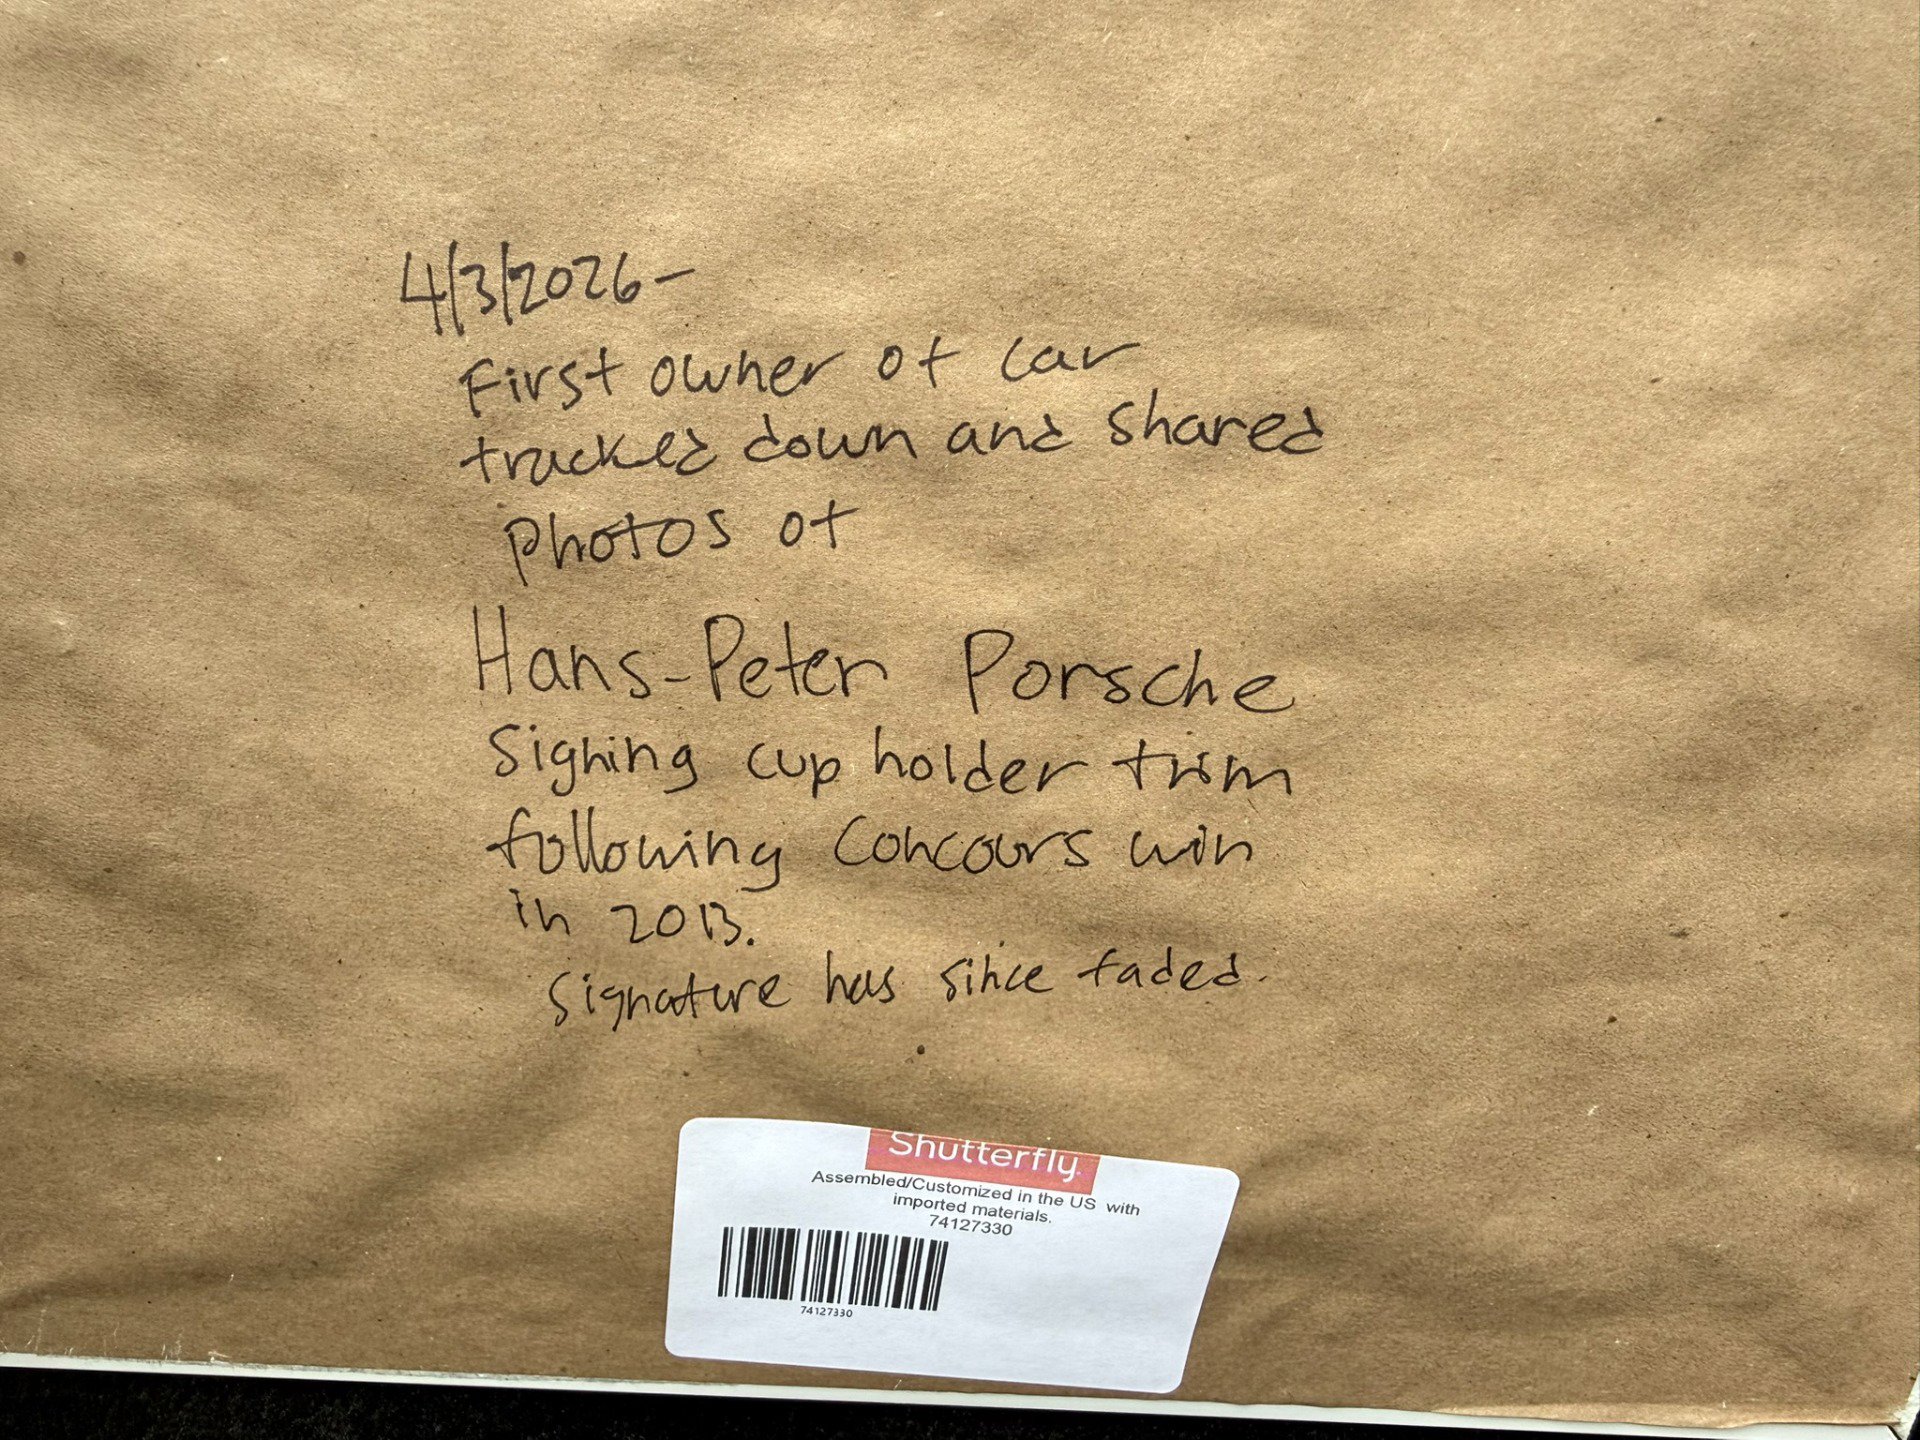 4/3/2026-
First owner of car
tracked down and shared
Photos of
Hans-Peter Porsche
Signing cup holder trim
following Concours win
in 2013.
Signature has since faded.
Shutterfly
Assembled/Customized in the US with
imported materials.
74127330
74127330